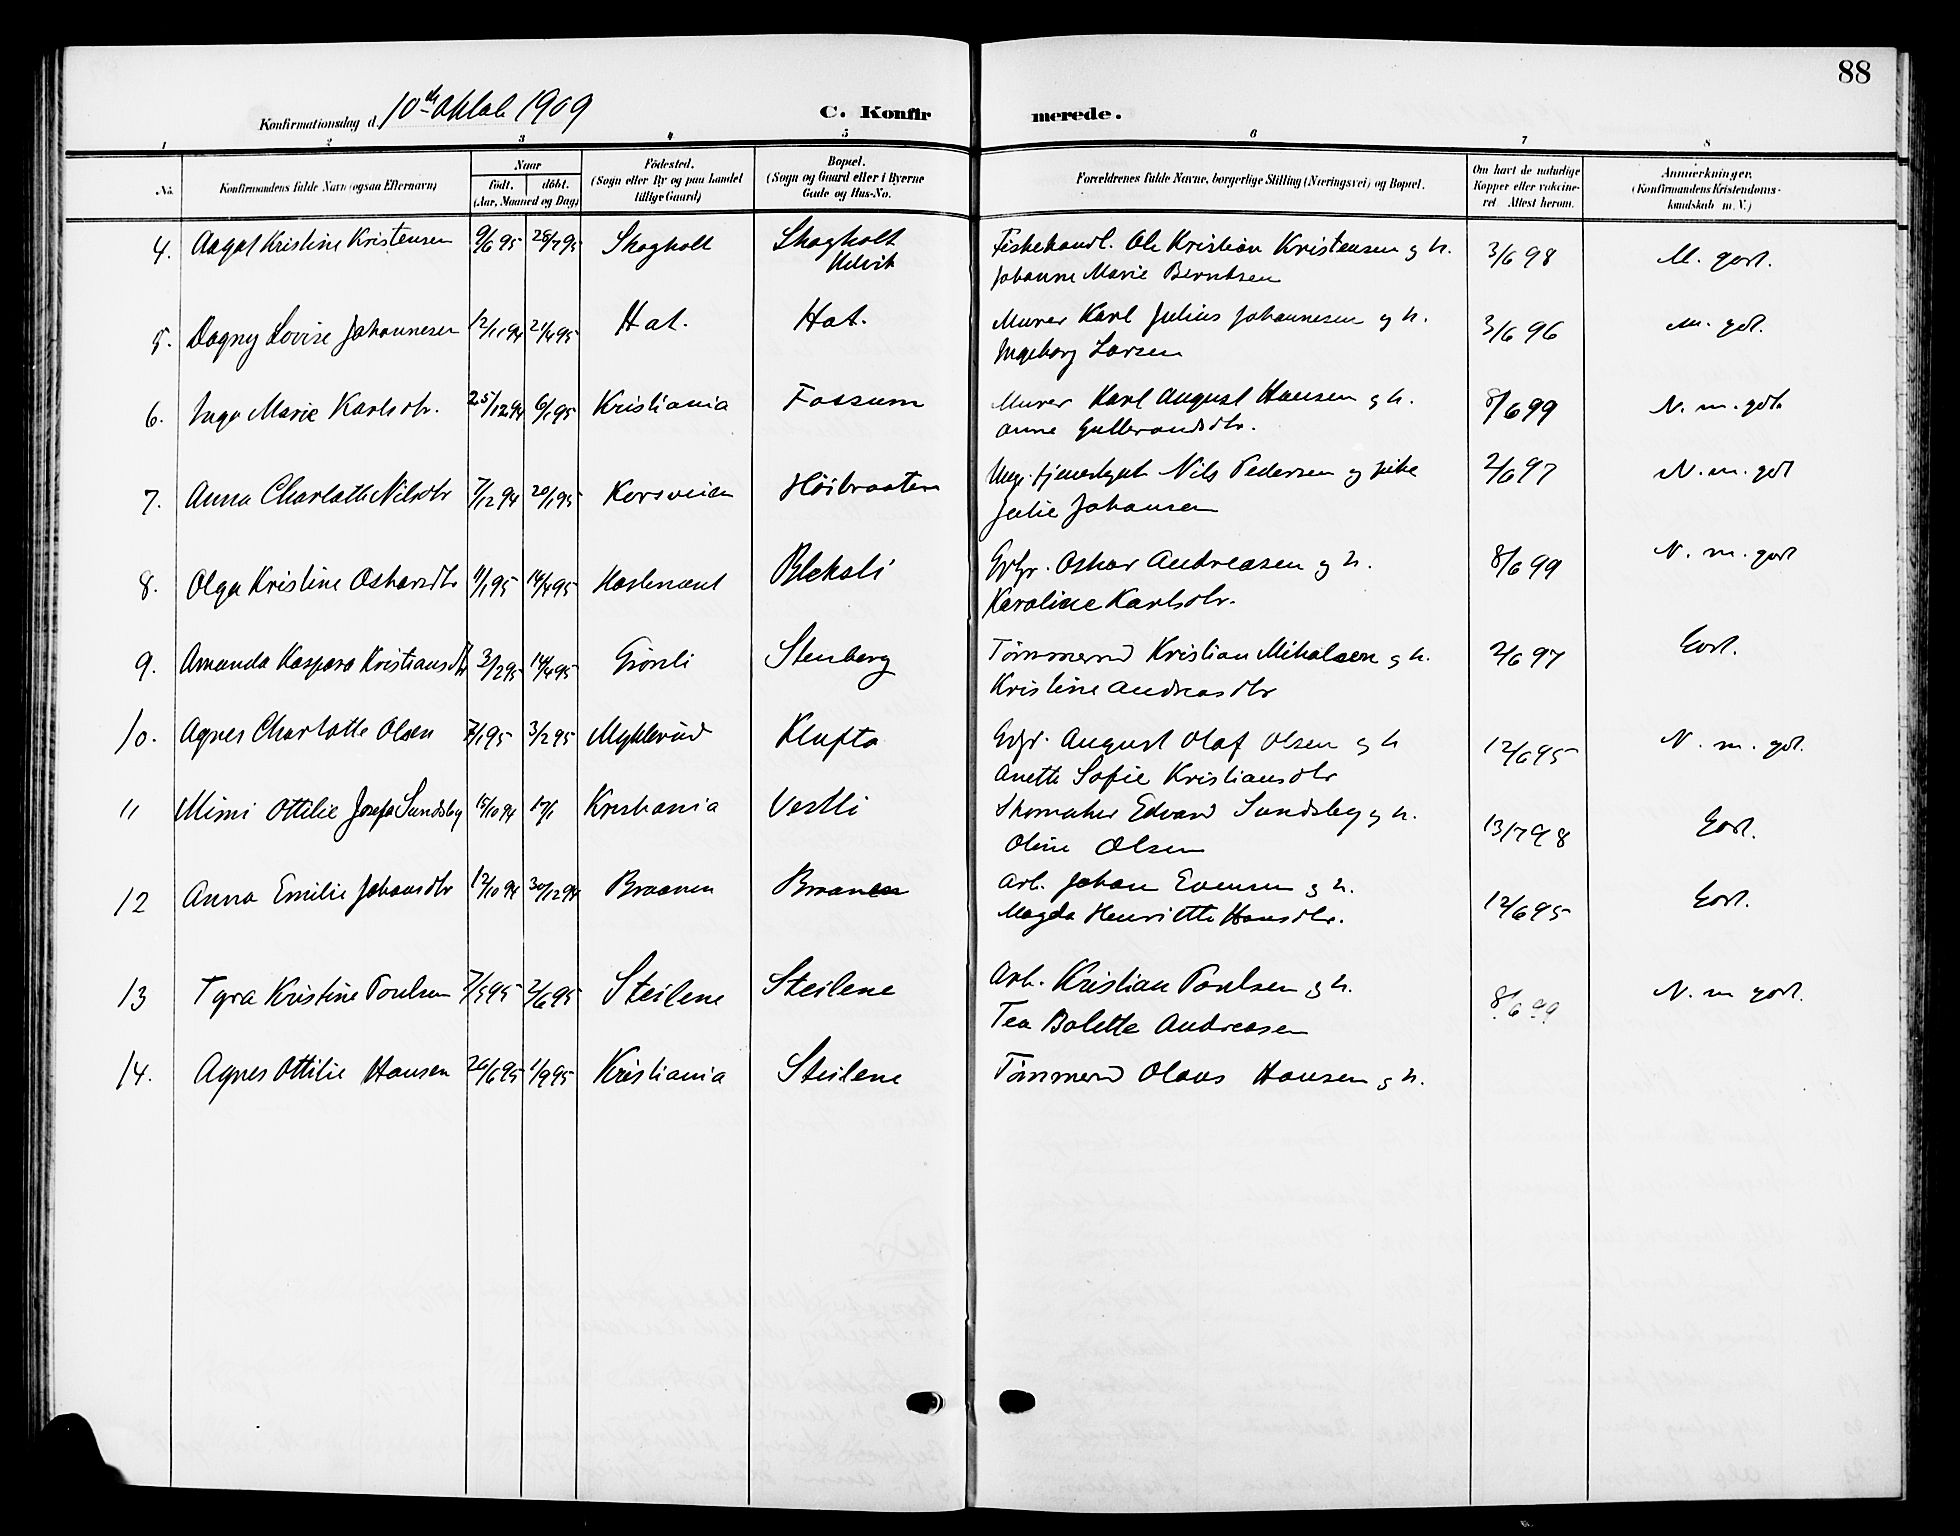 88
Konfirmationsdag d. 10de Oktob 1909 C. Konfirmerede.
1 2 3 4 5 6 7 8
No. Konfirmandens fulde Navn (ogsaa Efternavn) Naar født, døbt. (Aar, Maaned og Dag) Fødested. (Sogn eller By og paa Landet tillige Gaard) Bopæl. (Sogn og Gaard eller i Byerne Gade og Hus-No. Forældrenes fulde Navne, borgerlige Stilling (Næringsvei) og Bopæl. Om havt de naturlige Kopper eller vaccineret Attest herom. Anmerkninger. (Konfirmandens Kristendomskundskab m. V.)
4. Aagot Kristine Kristensen 9/6 95 28/7 95 Skogholt Skogholt Fiskehandl. Ole Kristian Kristensen g h. 3/6 98 M. godt.
Helvik Johanne Marie Berntsen
5. Dagny Lovise Johannesen 12/11 94 21/4 95 Hat. Hat. Murer Karl Julius Johannesen og h. 3/6 96 M. gdt.
Ingeborg Larsen
6. Inga Marie Karlsdtr. 25/12 94 6/1 95 Kristiania Fossum Murer Karl August Hansen g h. 8/6 99 N. m. gdt.
Anne Gulbrandsdtr.
7. Anna Charlotte Nilsdtr 7/12 94 20/1 95 Korsveien Høibraaten Ung. tjenestegut Nils Pedersen og pike 2/6 97 N. m. gdt
Julie Johansen
8. Olga Kristine Oskarsdtr 11/1 95 14/4 95 Haslemoent Bleksli Grfr. Oskar Andreasen og h. 8/6 99 N. m. godt
Karoline Karlsdtr.
9. Amanda Kaspara Kristiansdtr 3/2 95 14/4 95 Grønli Stenberg Tømmermd Kristian Mikalsen g h. 2/6 97 Godt.
Kristine Andreasdtr
10. Agnes Charlotte Olsen 7/1 95 3/2 95 Myklerud Klufta Grfr. August Olaf Olsen og h 12/6 95 N. m. gdt.
Anette Sofie Kristiansdtr
11 Mimi Ottilie Josefa Sundsby 15/10 94 17/1 Kristiania Vestli Skomaker Edvard Sundsby g h. 13/7 98 Godt.
Oline Olsen
12 Anna Emilie Johansdtr 12/10 94 30/12 94 Braanen Braanen Arb. Johan Evensen g h. 12/6 95 Godt.
Magda Henriette Hansdtr.
13 Tyra Kristine Poulsen 7/5 95 2/6 95 Steilene Steilene Arb. Kristian Poulsen g h. 8/6 99 N. m godt.
Tea Bolette Andreasen
14. Agnes Ottilie Hansen 26/6 95 1/9 95 Kristiania Steilene Tømmermd Olaus Hansen g h.